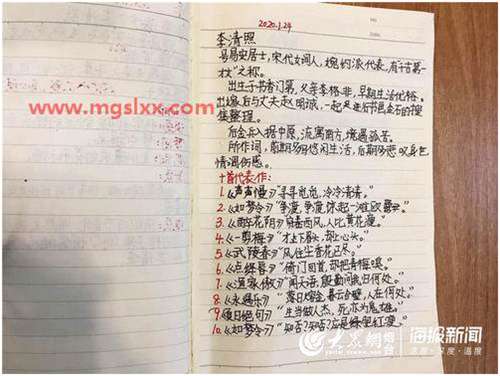 2020.1.24
李清照
号易安居士,宋代女词人,婉约派代表,有"千古第一
才女"之称。
出生于书香门第,父亲李格非,早期生活优裕。
出嫁后与丈夫赵明诚,一起
集整理。
后金兵入据中原,流寓南方,境遇孤苦。
所作词,前期多写悠闲生活,后期多悲叹身世
情调伤感。
十首代表作:
1.《声声慢》"寻寻觅觅,冷冷清清。"
2.《如梦令》"争渡,争渡,惊起一滩鸥鹭。"
3.《醉花阴》"帘卷西风,人比黄花瘦。"
4.《一剪梅》"才下眉头,却上心头。"
5.《武陵春》"风住尘香花已尽。"
6.《点绛唇》"倚门回首,却把青梅嗅。"
7.《渔家傲》"闻天语,殷勤问我归何处。"
8.《永遇乐》"落日熔金,暮云合璧,人在何处。"
9.《夏日绝句》"生当做人杰,死亦为鬼雄。"
10.《如梦令》"知否?知否?应是绿肥红瘦。"
www.mgslxx.com
大众网 海报新闻